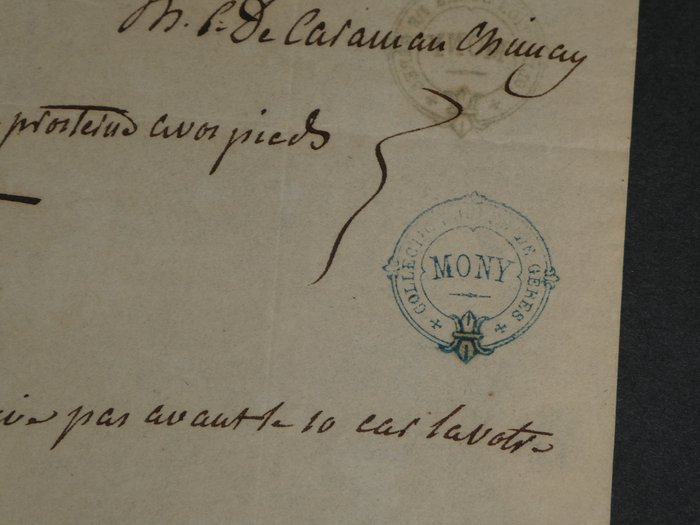 De Caraman Chimay
prosterné a vos pieds
COLLECTION DE GERES
MONY
pas avant le 10 car la votre